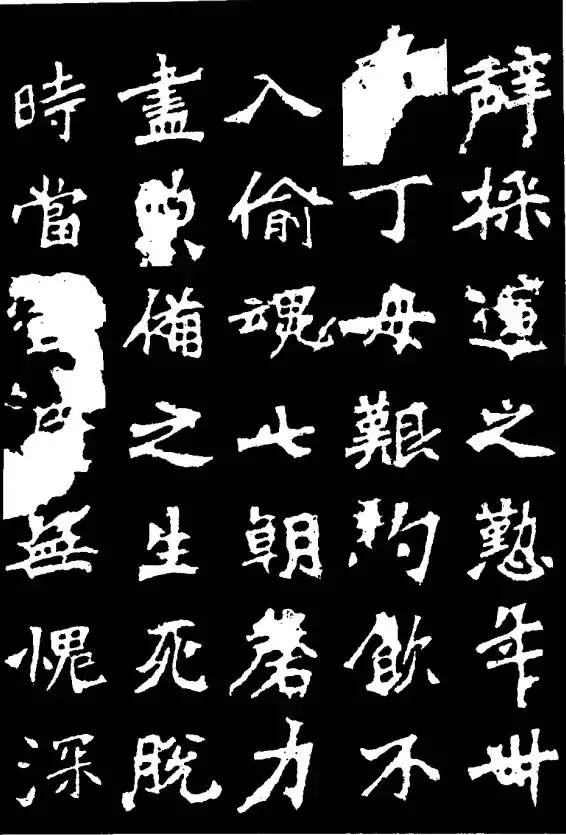 辭採運之懃年卅
丁母艱勺飲不
入偷魂七朝磬力
盡備之生死脫
時當無愧深